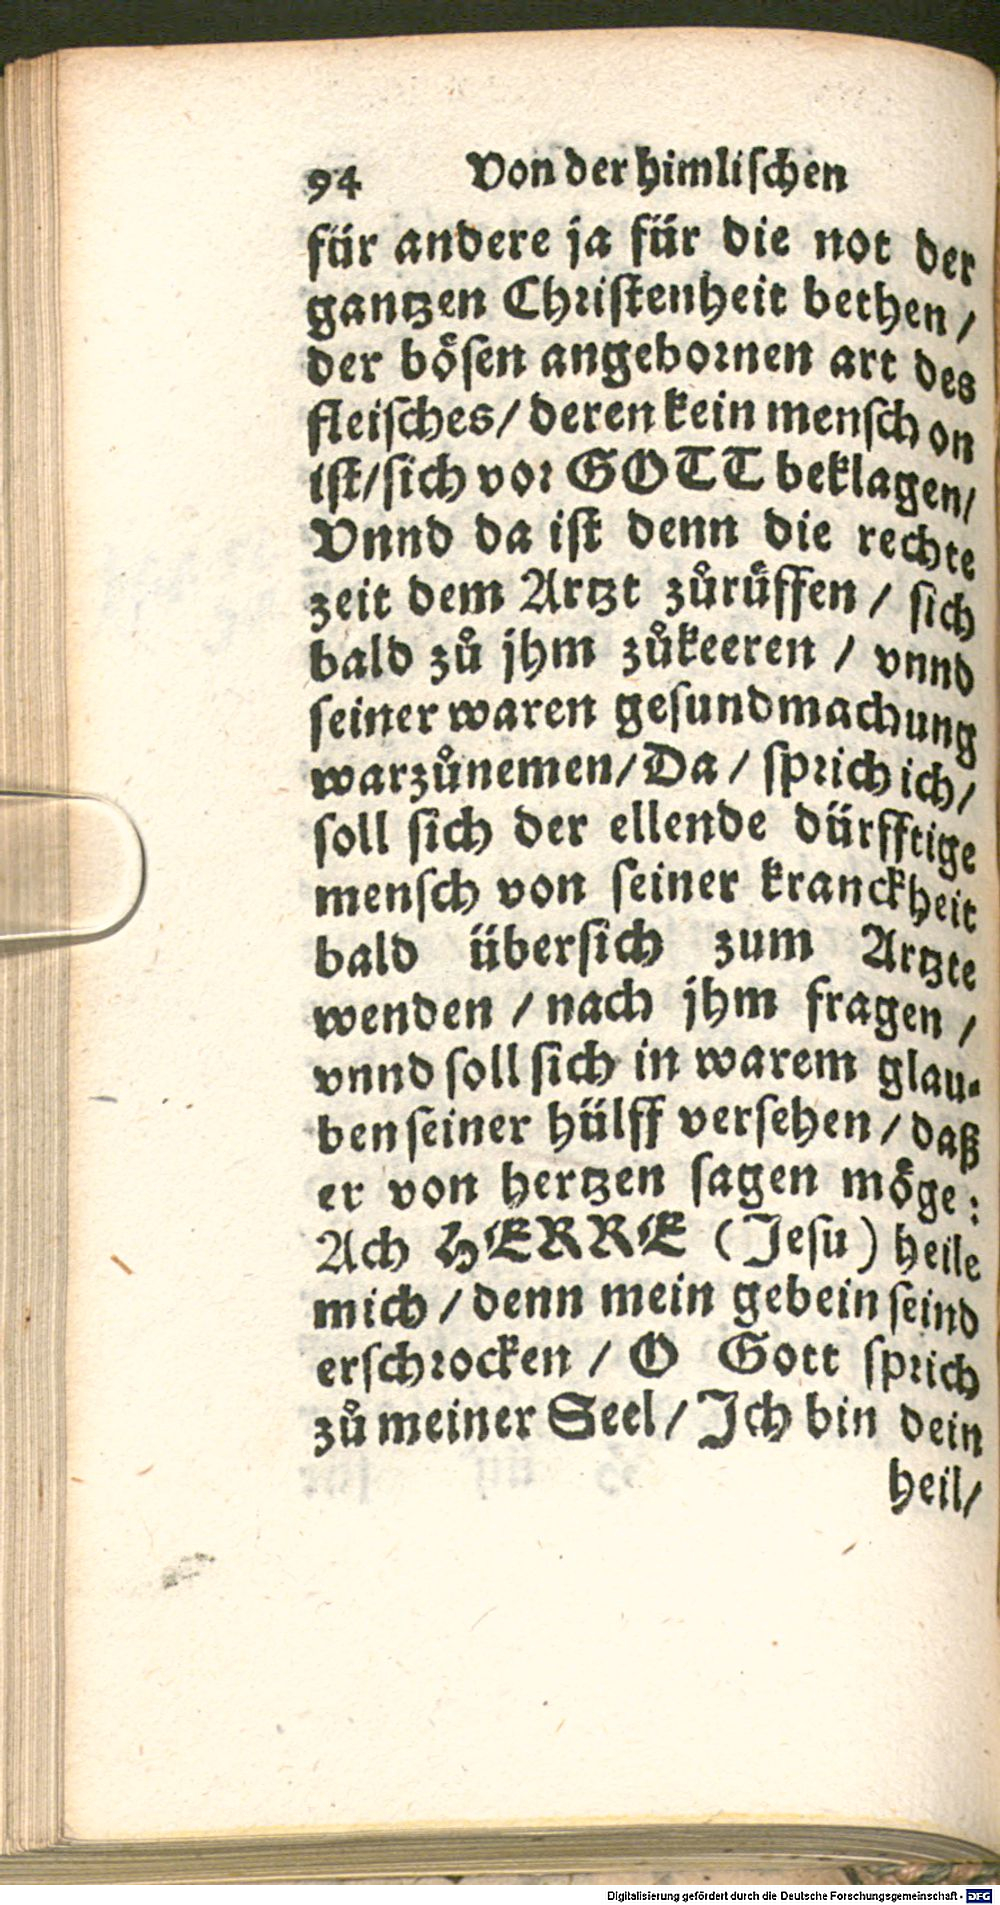 94 Von der himlischen
für andere ja für die not der
gantzen Christenheit bethen /
der bösen angebornen art des
fleisches / deren kein mensch on
ist / sich vor GOTT beklagen /
Vnnd da ist denn die rechte
zeit dem Artzt zůrüffen / sich
bald zů jhm zůkeeren / vnnd
seiner waren gesundmachung
warzůnemen / Da / sprich ich /
soll sich der ellende dürfftige
mensch von seiner kranckheit
bald übersich zum Artzte
wenden / nach jhm fragen /
vnnd soll sich in warem glau-
ben seiner hülff versehen / daß
er von hertzen sagen möge :
Ach HERRE ( Jesu ) heile
mich / denn mein gebein seind
erschrocken / O Gott sprich
zů meiner Seel / Ich bin dein
heil /
Digitalisierung gefördert durch die Deutsche Forschungsgemeinschaft - DFG